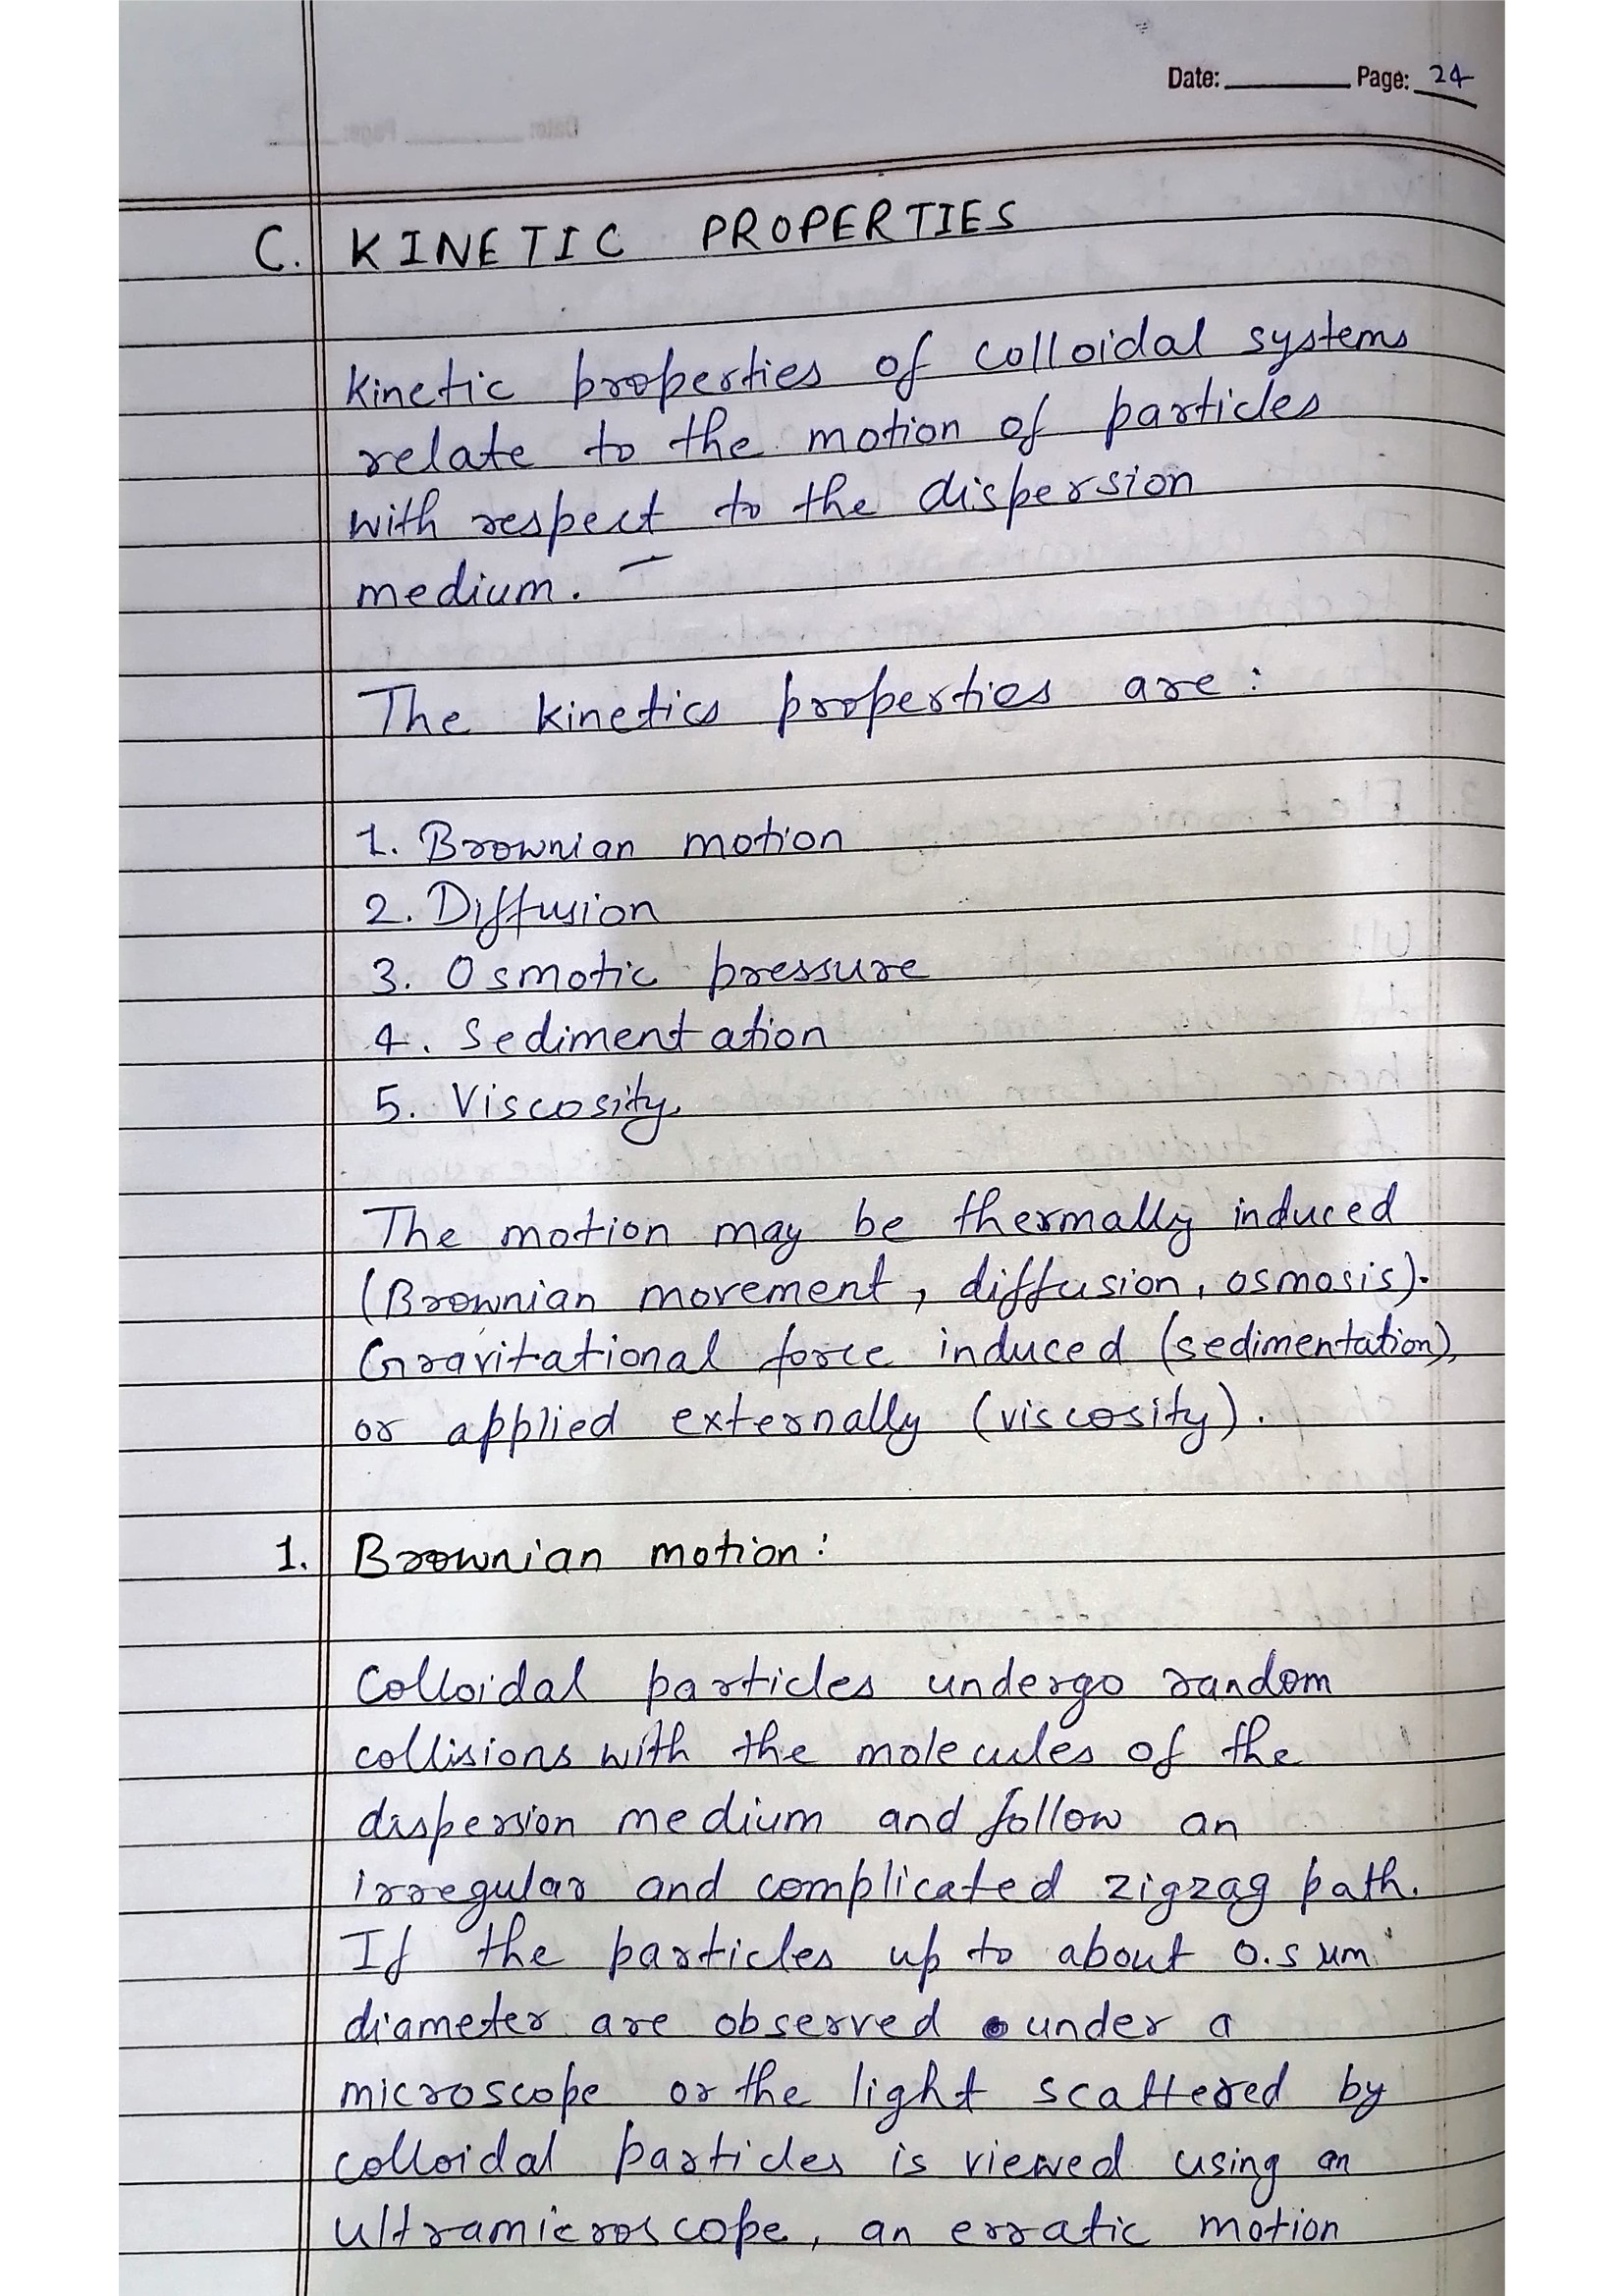 Date: Page: 24
C. KINETIC PROPERTIES
Kinetic properties of colloidal systems
relate to the motion of particles
with respect to the dispersion
medium.
The kinetics properties are:
1. Brownian motion
2. Diffusion
3. Osmotic pressure
4. Sedimentation
5. Viscosity
The motion may be thermally induced
(Brownian movement, diffusion, osmosis).
Gravitational force induced (sedimentation),
or applied externally (viscosity).
1. Brownian motion:
Colloidal particles undergo random
collisions with the molecules of the
dispersion medium and follow an
irregular and complicated zigzag path.
If the particles up to about 0.5 um
diameter are observed under a
microscope or the light scattered by
colloidal particles is viewed using an
ultramicroscope, an erratic motion